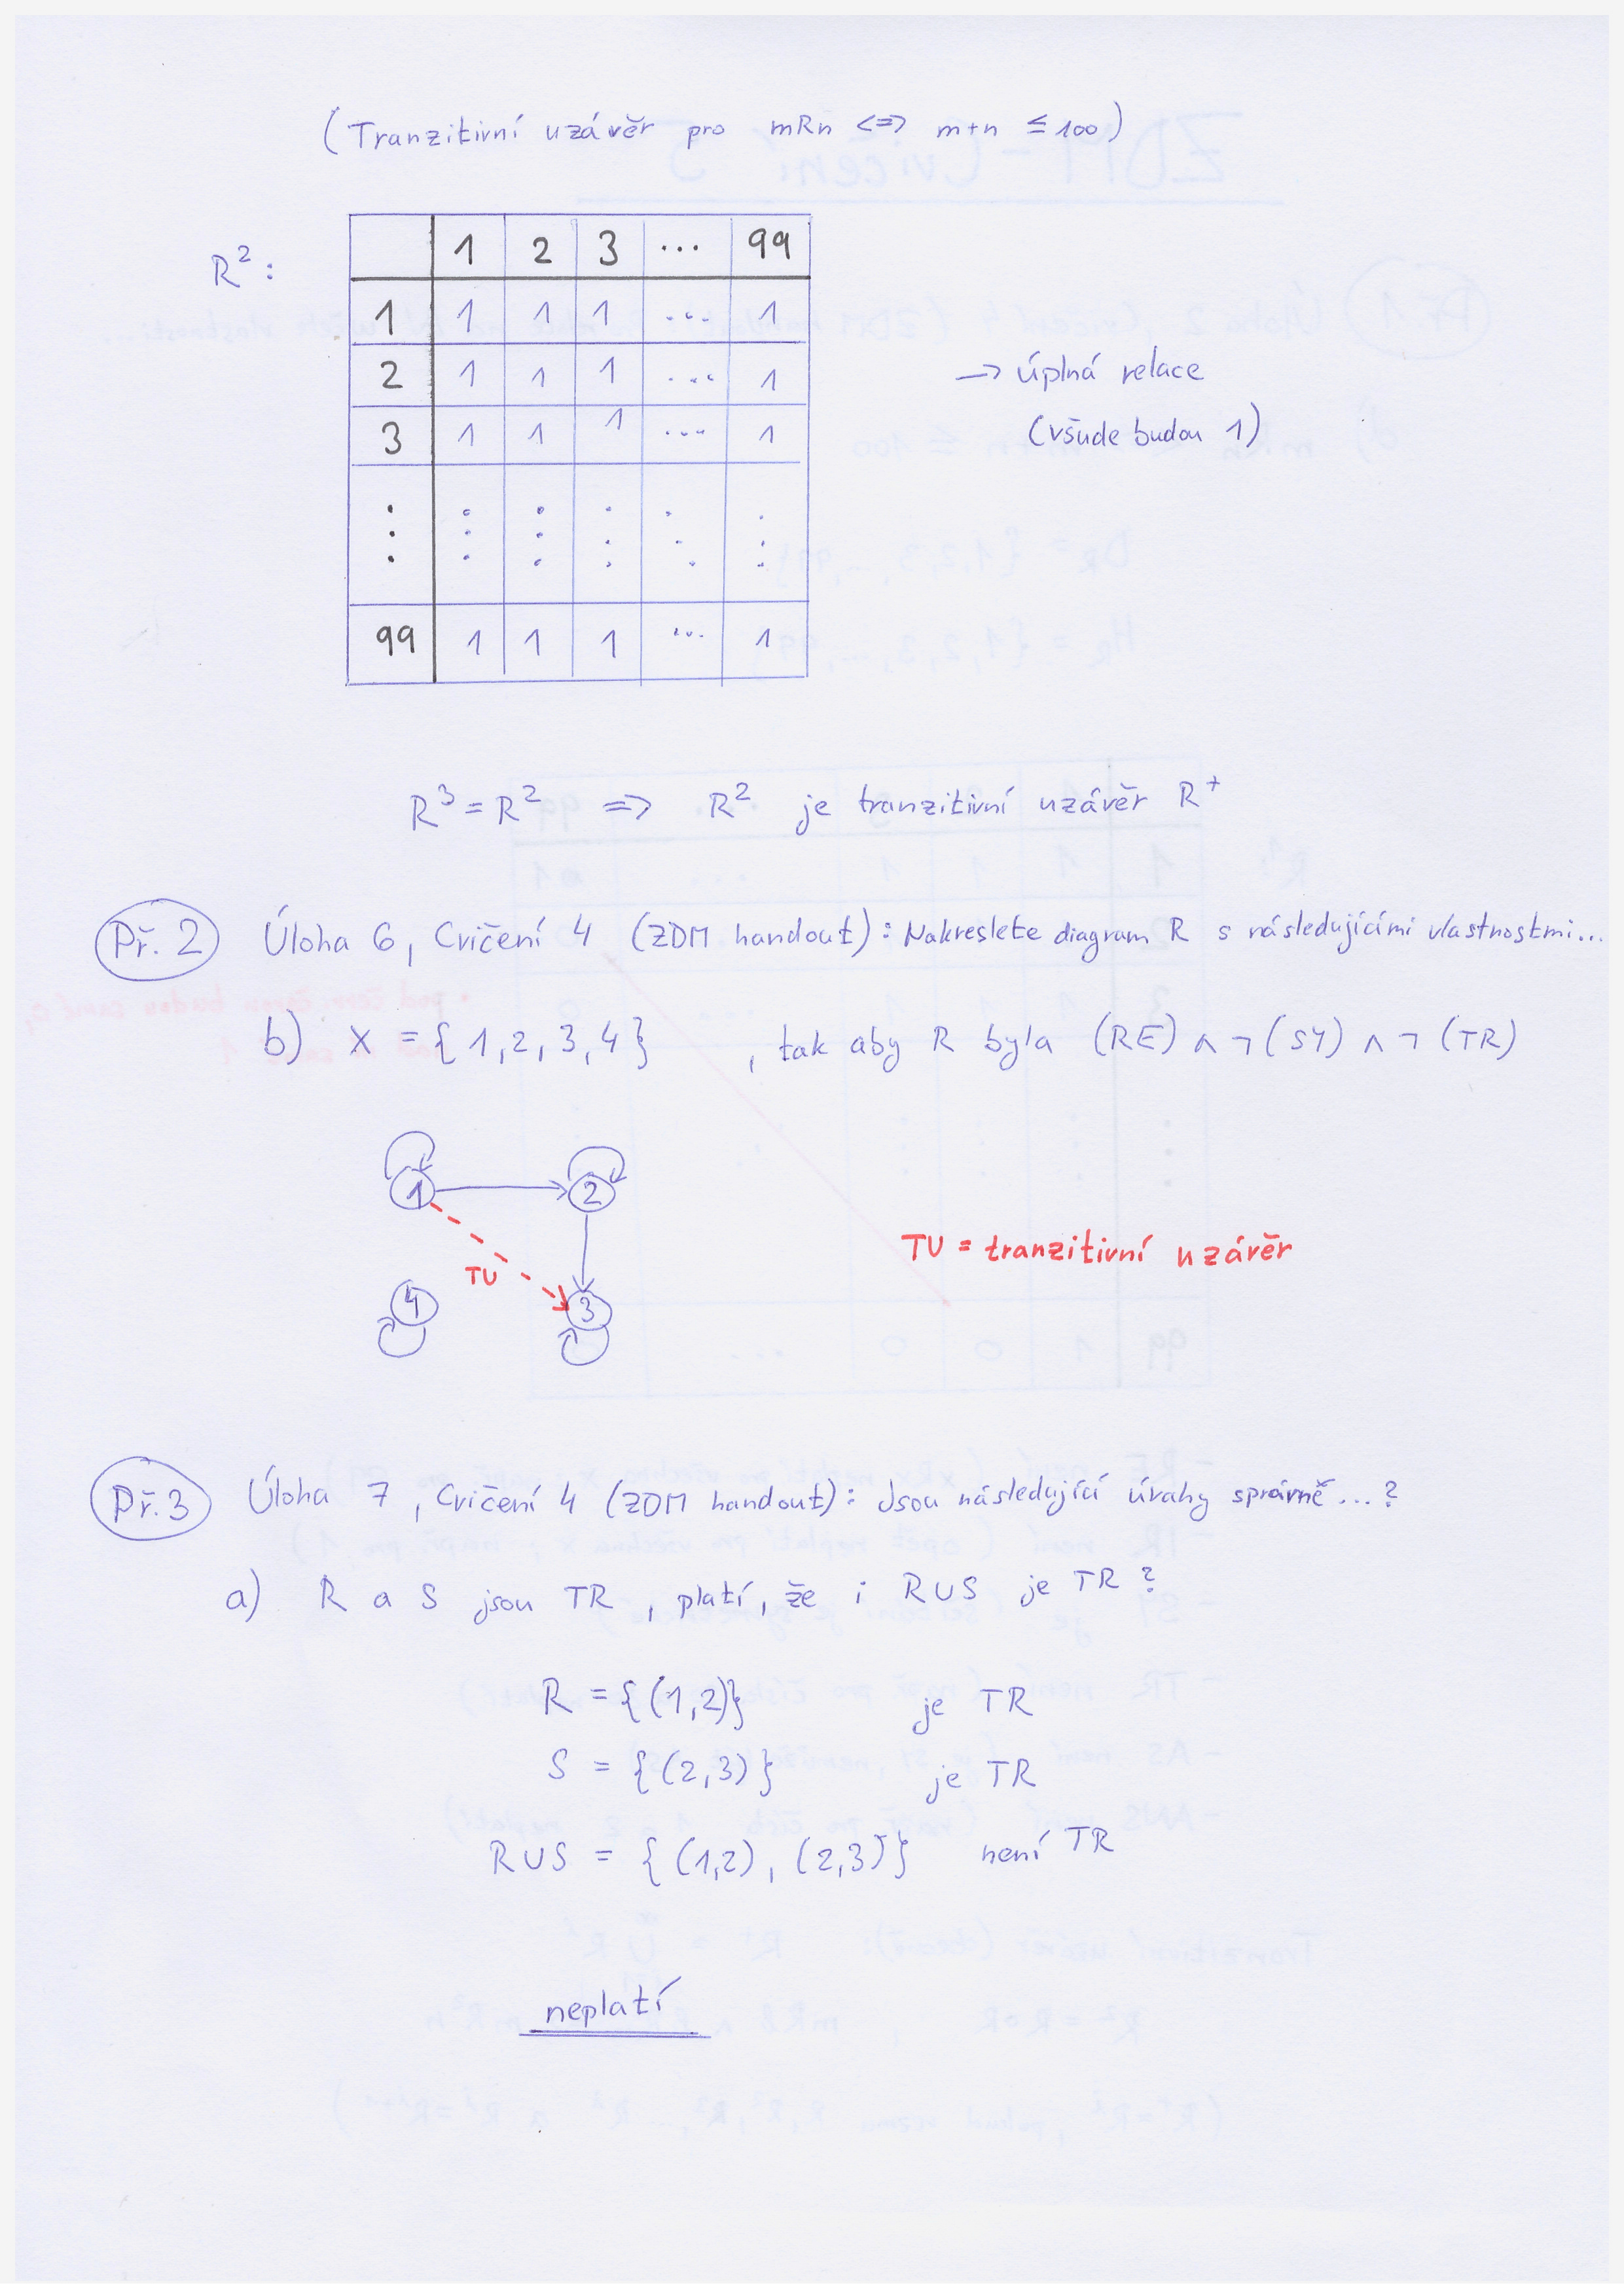 (Tranzitivní uzávěr pro mRn <=> m+n ≤ 100)
R²:
1 2 3 ... 99
1 1 1 1 ... 1
2 1 1 1 ... 1
3 1 1 1 ... 1
⋮ ⋮ ⋮ ⋮ ⋱ ⋮
99 1 1 1 ... 1
→ úplná relace
(všude budou 1)
R³ = R² => R² je tranzitivní uzávěr R⁺
Př. 2 Úloha 6, Cvičení 4 (ZDM handout): Nakreslete diagram R s následujícími vlastnostmi...
b) X = {1,2,3,4} , tak aby R byla (RE) ∧ ¬(SY) ∧ ¬(TR)
1 2
TU
4 3
TU = tranzitivní uzávěr
Př. 3 Úloha 7, Cvičení 4 (ZDM handout): Jsou následující úvahy správně...?
a) R a S jsou TR, platí, že i R∪S je TR?
R = {(1,2)} je TR
S = {(2,3)} je TR
R∪S = {(1,2), (2,3)} není TR
neplatí